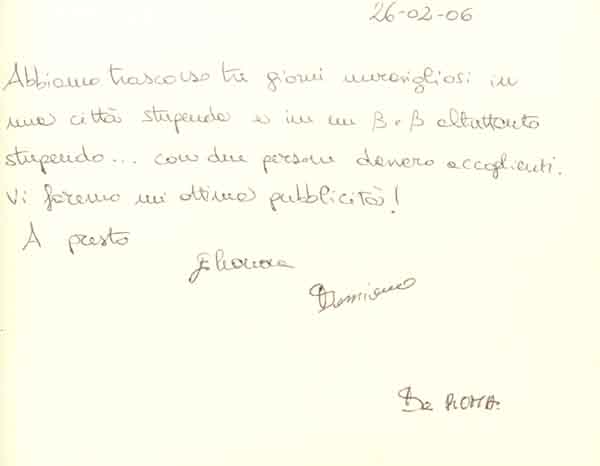 26-02-06
Abbiamo trascorso tre giorni meravigliosi in
una città stupenda e in un B e B altrettanto
stupendo... con due persone davvero accoglienti.
Vi faremo un'ottima pubblicità!
A presto
Damiano
Da ROMA.